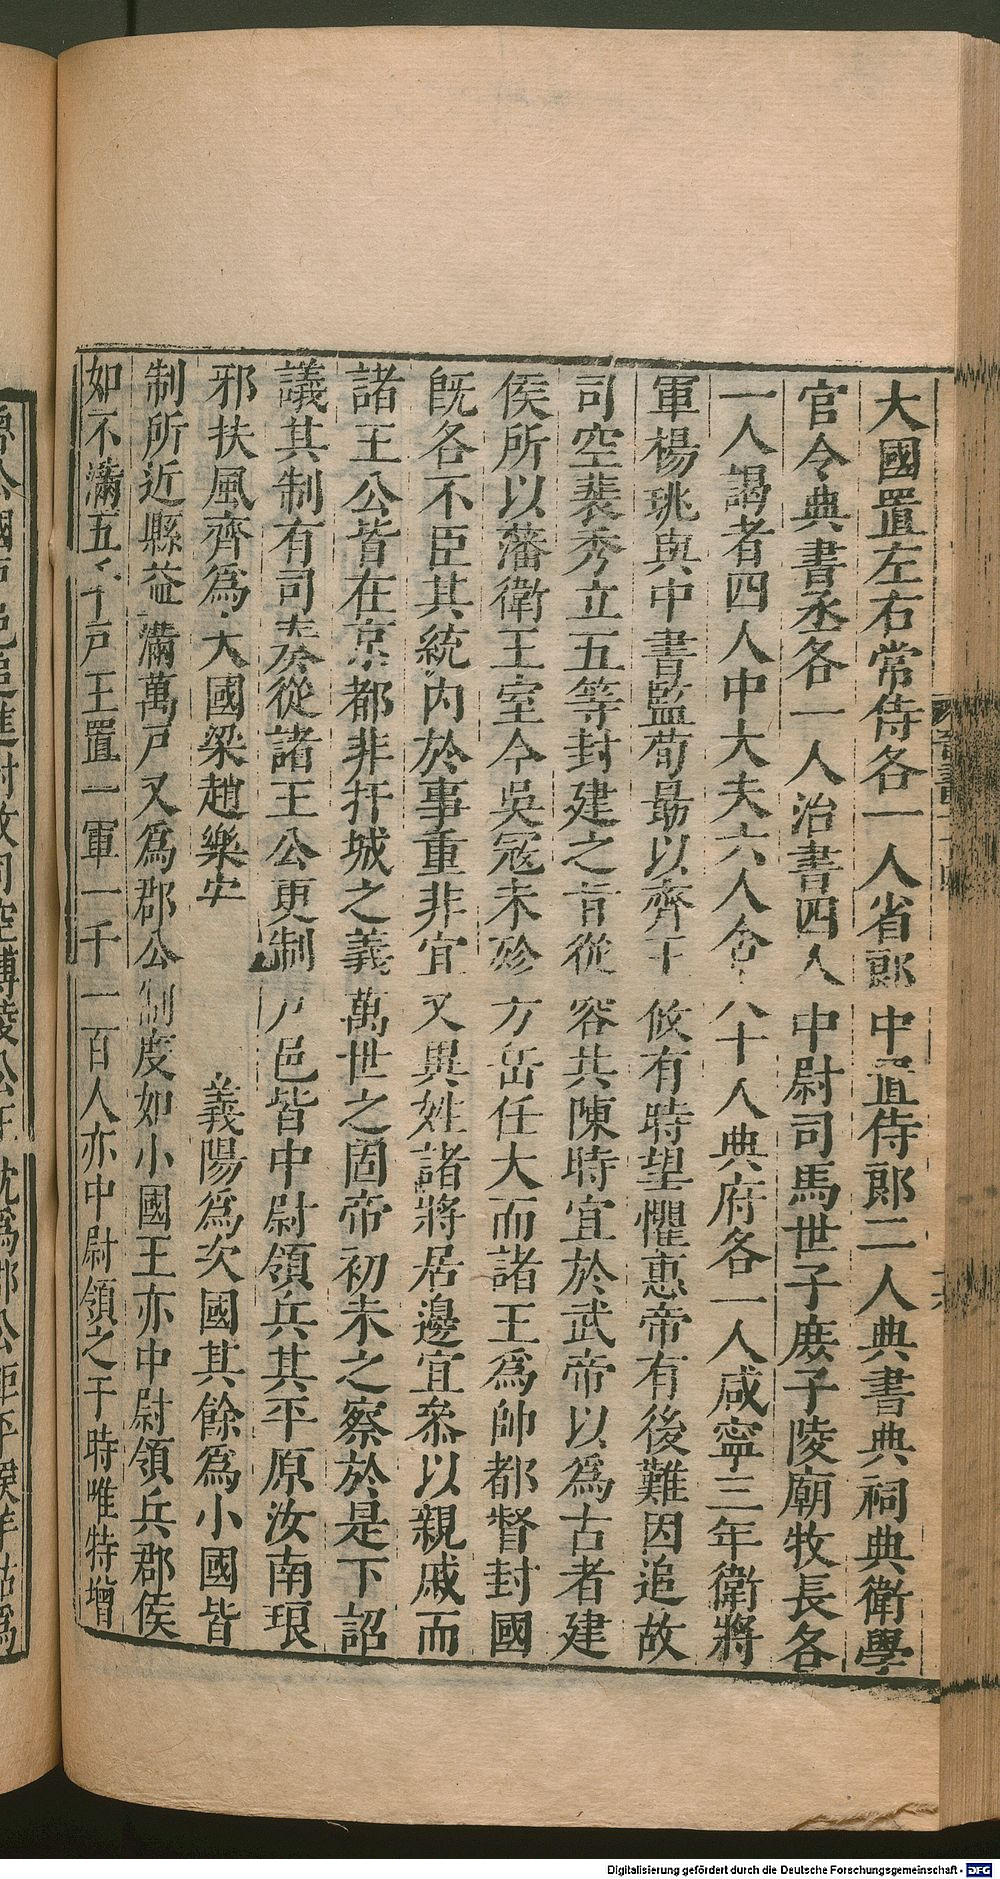 大國置左右常侍各一人省郎中置侍郎二人典書典祠典衛學
官令典書丞各一人治書四人中尉司馬世子庶子陵廟牧長各
一人謁者四人中大夫六人舍人十人典府各一人咸寧三年衛將
軍楊珧與中書監荀勗以齊王攸有時望懼惠帝有後難因追故
司空裴秀立五等封建之旨從容共陳時宜於武帝以爲古者建
侯所以藩衛王室今吳寇未殄方岳任大而諸王爲帥都督封國
旣各不臣其統內於事重非宜又異姓諸將居邊宜叅以親戚而
諸王公皆在京都非扞城之義萬世之固帝初未之察於是下詔
議其制有司奏從諸王公更制戶邑皆中尉領兵其平原汝南琅
邪扶風齊爲大國梁趙樂安義陽爲次國其餘爲小國皆
制所近縣益滿萬戶又爲郡公制度如小國王亦中尉領兵郡侯
如不滿五千戶王置一軍一千一百人亦中尉領之于時唯特增
魯公國戶邑追進封故司空博陵公王沈爲郡公鉅平侯羊祜爲
Digitalisierung gefördert durch die Deutsche Forschungsgemeinschaft - DFG